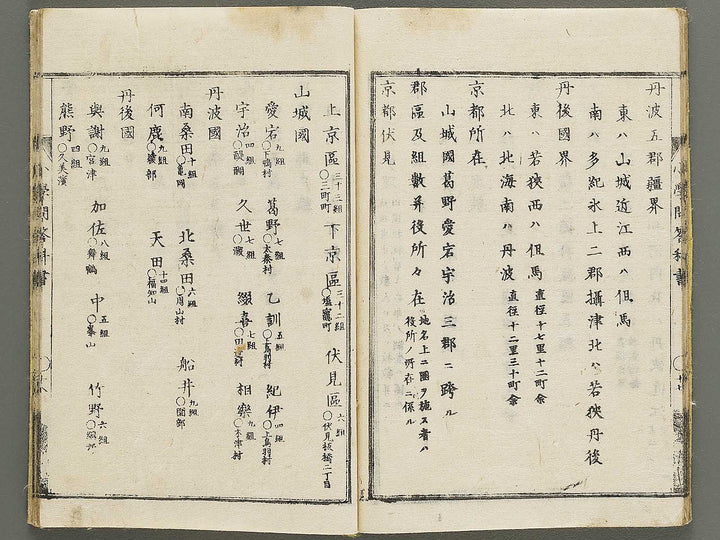 丹波五郡疆界
東ハ山城近江西ハ但馬
南ハ多紀氷上二郡攝津北ハ若狹丹後
丹後國界
東ハ若狹西ハ但馬 直徑十七里十二町余
北ハ北海南ハ丹波 直徑十二里三十町余
京都所在
山城國葛野愛宕宇治三郡ニ跨ル
郡區及組數并役所々在 地名上ニ圏ヲ施ス者ハ役所ノ所在ニ係ル
京都伏見
上京區 三十三組 〇三町町 下京區 三十二組 〇塩竈町 伏見區 六組 〇伏見板橋二丁目
山城國
愛宕 九組 〇下鴨村 葛野 七組 〇太秦村 乙訓 五組 紀伊 四組 〇上鳥羽村
宇治 四組 〇醍醐 久世 七組 〇淀 綴喜 七組 〇田邊村 相樂 九組 〇木津村
丹波國
南桑田 十組 〇亀岡 北桑田 六組 〇周山村 船井 九組 〇園部
何鹿 九組 〇綾部 天田 十四組 〇福知山
丹後國
與謝 九組 〇宮津 加佐 八組 〇舞鶴 中 五組 〇峯山 竹野 六組
熊野 四組 〇久美濱
小學問答科書